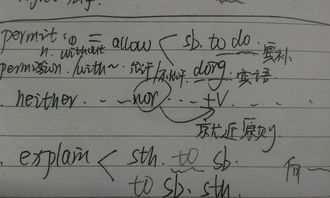 permit: ⓥ = allow < sb. to do. 宾补
n. without
permission. with~ 允许/不允许 doing. 宾语
neither. . . nor. . . +V. . . .
就近原则
explain < sth. to sb. 向
to sb. sth.